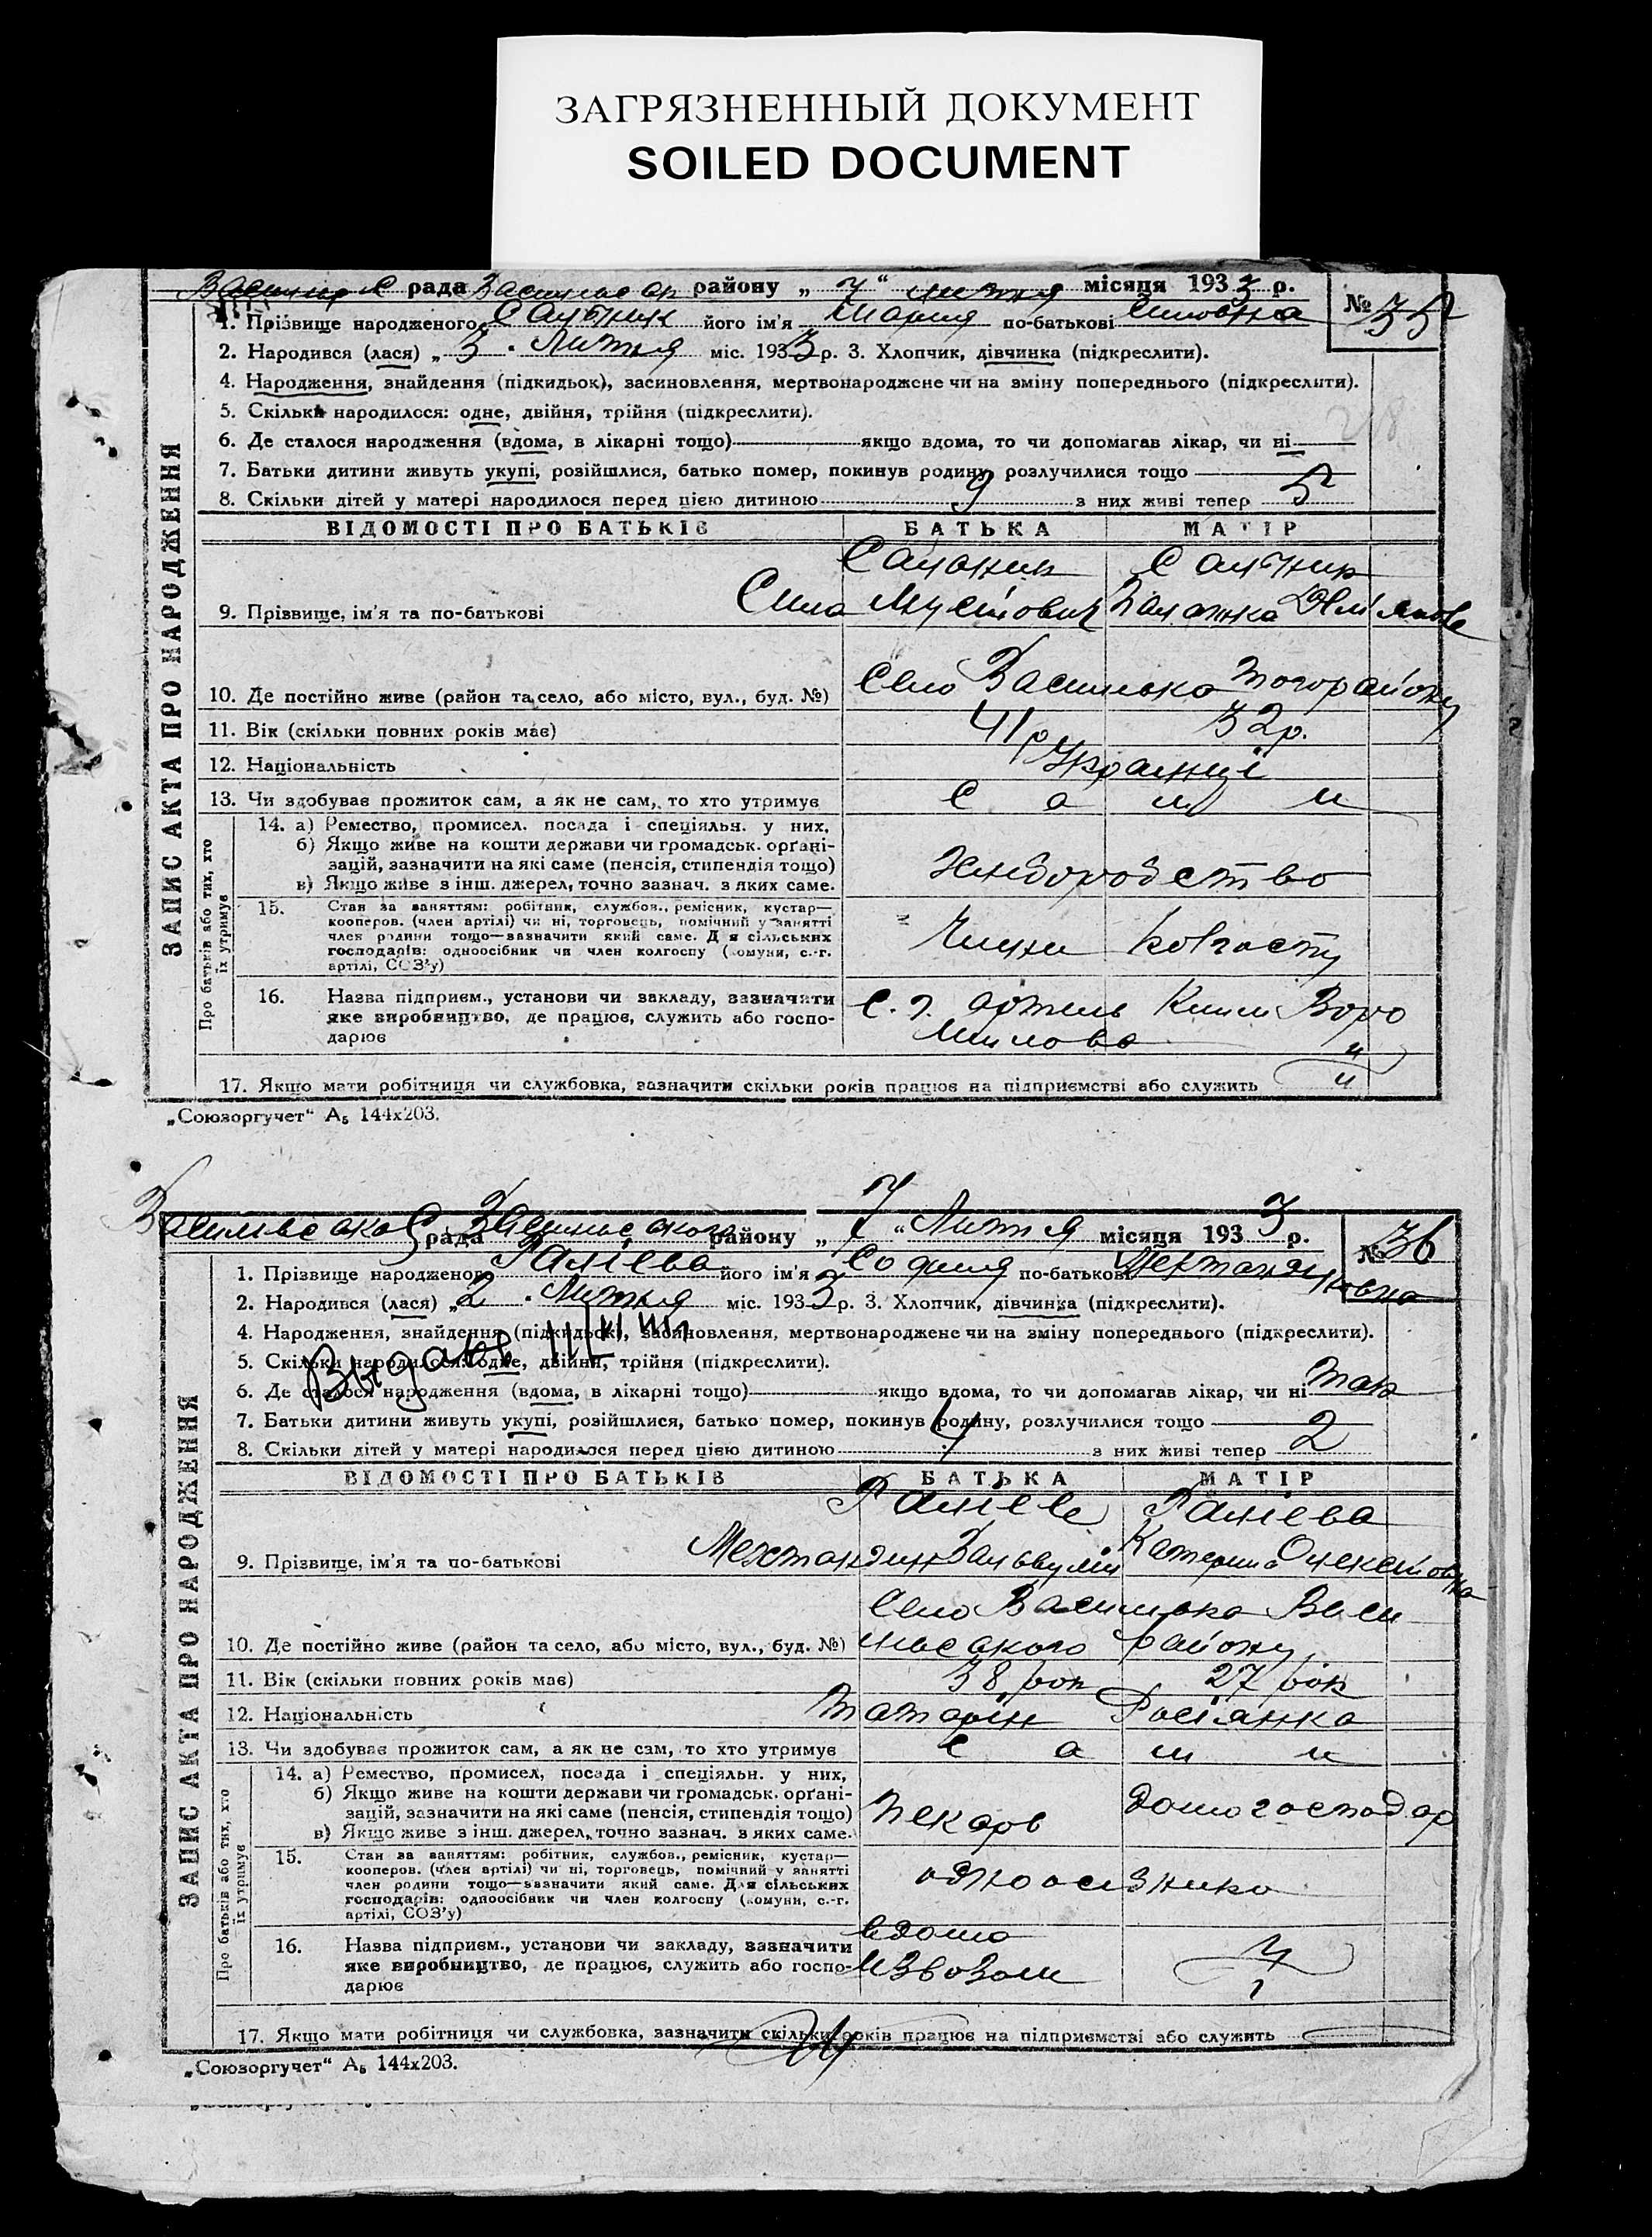 ЗАГРЯЗНЕННЫЙ ДОКУМЕНТ
SOILED DOCUMENT
рада району „ 7 “ лютня місяця 193 3 р. № 35
1. Прізвище народженого Сальник його ім'я Мария по-батькові Силовна
2. Народився (лася) „ 3 . Лютня міс. 193 3 р. 3. Хлопчик, дівчинка (підкреслити).
4. Народження, знайдення (підкидьок), засиновлення, мертвонароджене чи на зміну попереднього (підкреслити).
5. Скільки народилося: одне, двійня, трійня (підкреслити).
6. Де сталося народження (вдома, в лікарні тощо) якщо вдома, то чи допомагав лікар, чи ні
7. Батьки дитини живуть укупі, розійшлися, батько помер, покинув родину, розлучилися тощо
8. Скільки дітей у матері народилося перед цією дитиною 9 з них живі тепер 5
ЗАПИС АКТА ПРО НАРОДЖЕННЯ
ВІДОМОСТІ ПРО БАТЬКІВ БАТЬКА МАТІР
Сальник Сальник
9. Прізвище, ім'я та по-батькові Сила
10. Де постійно живе (район та село, або місто, вул., буд. №) село Василька того району
11. Вік (скільки повних років має) 41 р 32 р.
12. Національність Українці
13. Чи здобуває прожиток сам, а як не сам, то хто утримує с а м и
Про батьків або тих, хто їх утримує
14. а) Ремество, промисел, посада і спеціяльн. у них,
б) Якщо живе на кошти держави чи громадськ. орґані-
зацій, зазначити на які саме (пенсія, стипендія тощо)
в) Якщо живе з інш. джерел, точно зазнач. з яких саме.
Хлібородство
15. Стан за заняттям: робітник, службов., ремісник, кустар—
кооперов. (член артілі) чи ні, торговець, помічний у занятті
член родини тощо—зазначити який саме. Для сільських
господарів: одноосібник чи член колгоспу (комуни, с.-г.
артілі, СОЗ'у)
Члени колгоспу
16. Назва підприєм., установи чи закладу, зазначити
яке виробництво, де працює, служить або госпо-
дарює
с. г. артель Клим Воро
шилова
17. Якщо мати робітниця чи службовка, зазначити скільки років працює на підприємстві або служить
„Союзоргучет“ А₅ 144х203.
Васильевской рада району „ 7 “ Лютня місяця 193 3 р. № 36
1. Прізвище народженого Галієва його ім'я София по-батькові
2. Народився (лася) „ 2 . Лютня міс. 193 3 р. 3. Хлопчик, дівчинка (підкреслити).
4. Народження, знайдення (підкидьок), засиновлення, мертвонароджене чи на зміну попереднього (підкреслити).
5. Скільки народилося: одне, двійня, трійня (підкреслити).
6. Де сталося народження (вдома, в лікарні тощо) якщо вдома, то чи допомагав лікар, чи ні так
7. Батьки дитини живуть укупі, розійшлися, батько помер, покинув родину, розлучилися тощо
8. Скільки дітей у матері народилося перед цією дитиною 4 з них живі тепер 2
ЗАПИС АКТА ПРО НАРОДЖЕННЯ
ВІДОМОСТІ ПРО БАТЬКІВ БАТЬКА МАТІР
Галієв Галієва
9. Прізвище, ім'я та по-батькові Катерина Олексеіовна
село Василька Васи
10. Де постійно живе (район та село, або місто, вул., буд. №) льевского району
11. Вік (скільки повних років має) 38 рок 27 рок
12. Національність татарін Росіянка
13. Чи здобуває прожиток сам, а як не сам, то хто утримує с а м и
Про батьків або тих, хто їх утримує
14. а) Ремество, промисел, посада і спеціяльн. у них,
б) Якщо живе на кошти держави чи громадськ. орґані-
зацій, зазначити на які саме (пенсія, стипендія тощо)
в) Якщо живе з інш. джерел, точно зазнач. з яких саме.
пекарь домогосподар
15. Стан за заняттям: робітник, службов., ремісник, кустар—
кооперов. (член артілі) чи ні, торговець, помічний у занятті
член родини тощо—зазначити який саме. Для сільських
господарів: одноосібник чи член колгоспу (комуни, с.-г.
артілі, СОЗ'у)
16. Назва підприєм., установи чи закладу, зазначити
яке виробництво, де працює, служить або госпо-
дарює
вдома
извозом
17. Якщо мати робітниця чи службовка, зазначити скільки років працює на підприємстві або служить
„Союзоргучет“ А₅ 144х203.